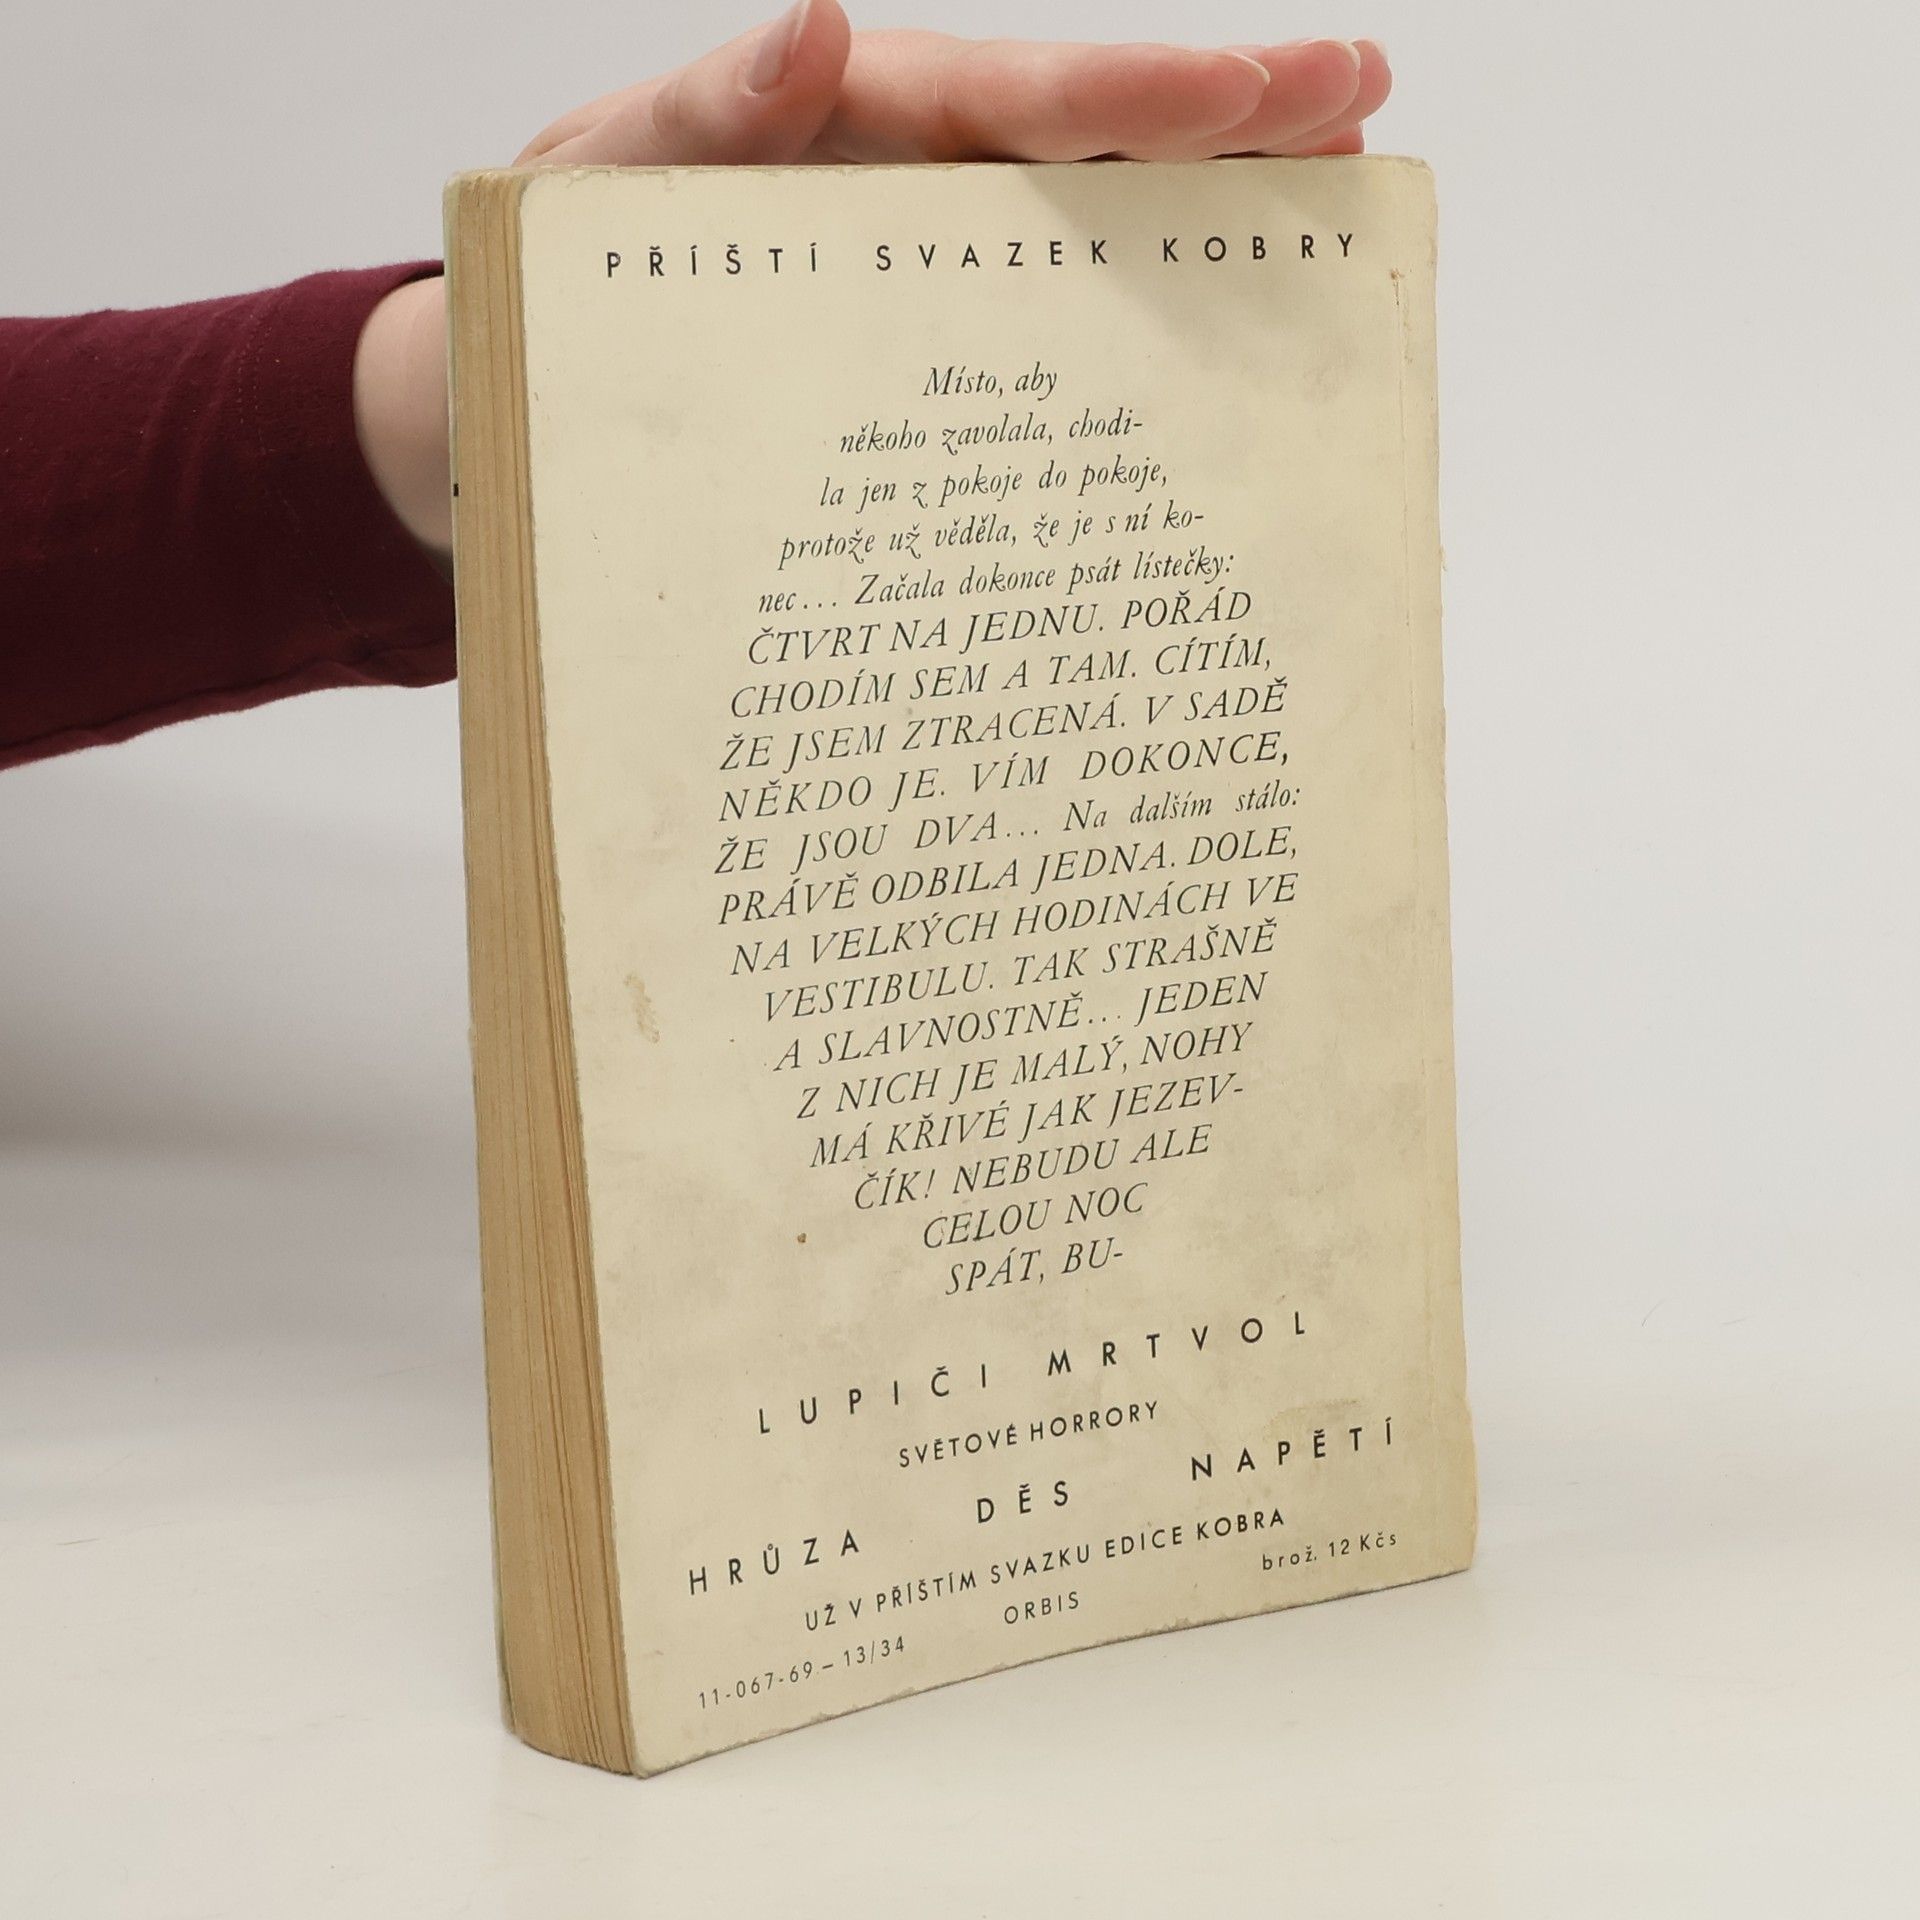 PŘÍŠTÍ SVAZEK KOBRY
Místo, aby
někoho zavolala, chodi-
la jen z pokoje do pokoje,
protože už věděla, že je s ní ko-
nec... Začala dokonce psát lístečky:
ČTVRT NA JEDNU. POŘÁD
CHODÍM SEM A TAM. CÍTÍM,
ŽE JSEM ZTRACENÁ. V SADĚ
NĚKDO JE. VÍM DOKONCE,
ŽE JSOU DVA... Na dalším stálo:
PRÁVĚ ODBILA JEDNA. DOLE,
NA VELKÝCH HODINÁCH VE
VESTIBULU. TAK STRAŠNĚ
A SLAVNOSTNĚ... JEDEN
Z NICH JE MALÝ, NOHY
MÁ KŘIVÉ JAK JEZEV-
ČÍK! NEBUDU ALE
CELOU NOC
SPÁT, BU-
LUPIČI MRTVOL
SVĚTOVÉ HORRORY
HRŮZA DĚS NAPĚTÍ
UŽ V PŘÍŠTÍM SVAZKU EDICE KOBRA
11-067-69 – 13/34 ORBIS brož. 12 Kčs